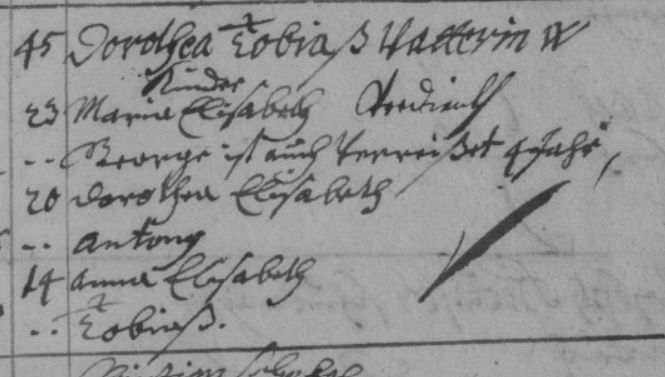 45 Dorothea Tobiaß Vatterin W
Kinder
23 Maria Elisabeth Verdient
.. George ist auch verreißet 4 Jahr,
20 Dorothea Elisabeth
.. Antong
14 Anna Elisabeth
.. Tobiaß.